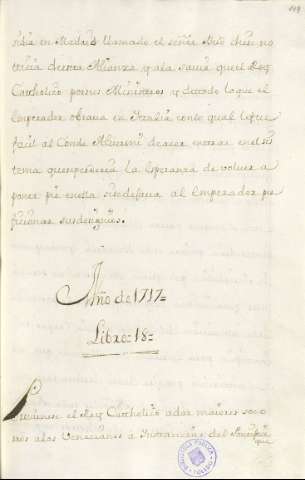 sidia en Madrid llamado el señor Bié dieze no
ticia de esta Alianza y ala savia que el Rey
Catholico por sus Ministros y de todo lo que el
Emperador obrava en Italia conto qual le fue
facil al Conde Alberoni de entrar en el sis
tema que perderia la esperanza de volver a
poner pie en ella sin dexava al Emperador per
ficionar sus designios.
Año de 1717=
Libro=18=
Previenese el Rey Catholico a dar maiores soco
rros a los Venecianos a Instancias del Pontifice
que